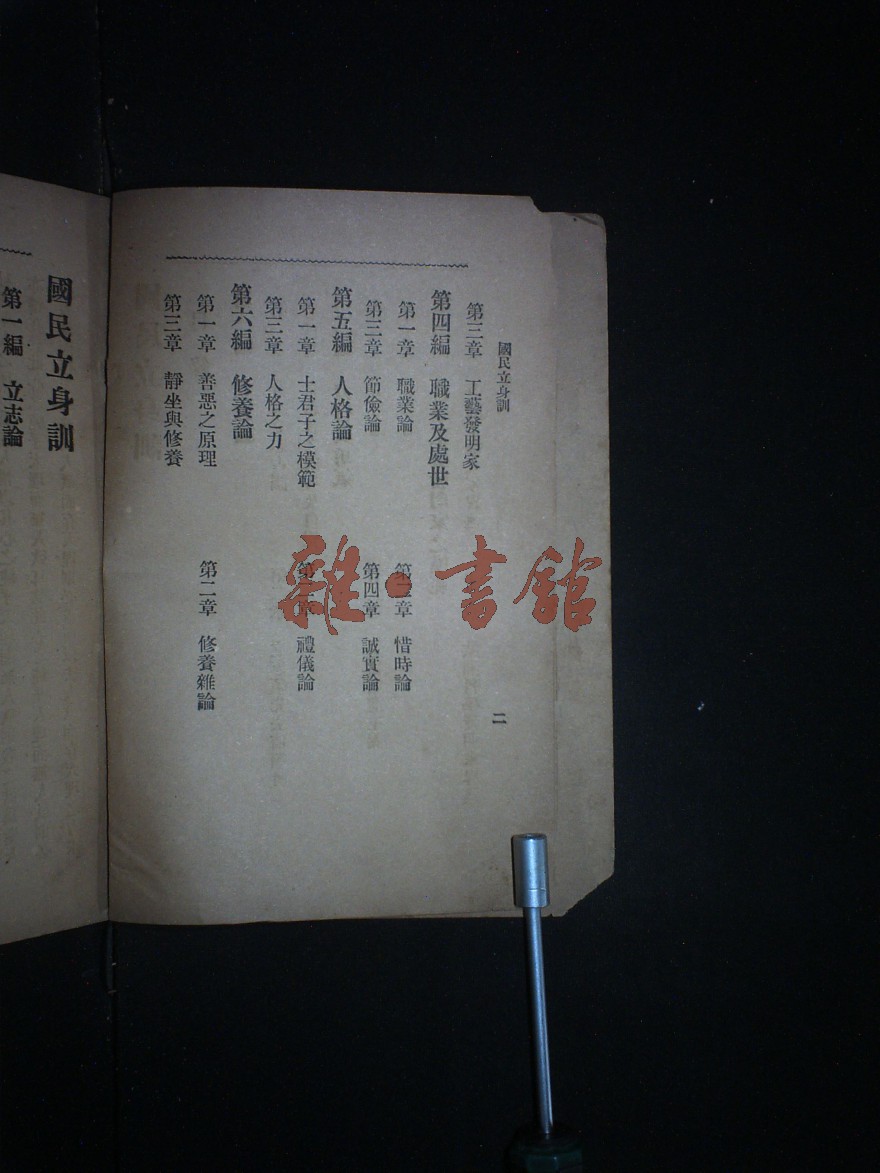 國民立身訓
二
第三章 工藝發明家
第四編 職業及處世
第一章 職業論 第二章 惜時論
第三章 節儉論 第四章 誠實論
第五編 人格論
第一章 士君子之模範 第二章 禮儀論
第三章 人格之力
第六編 修養論
第一章 善惡之原理 第二章 修養雜論
第三章 靜坐與修養
國民立身訓
第一編 立志論
雜·書館